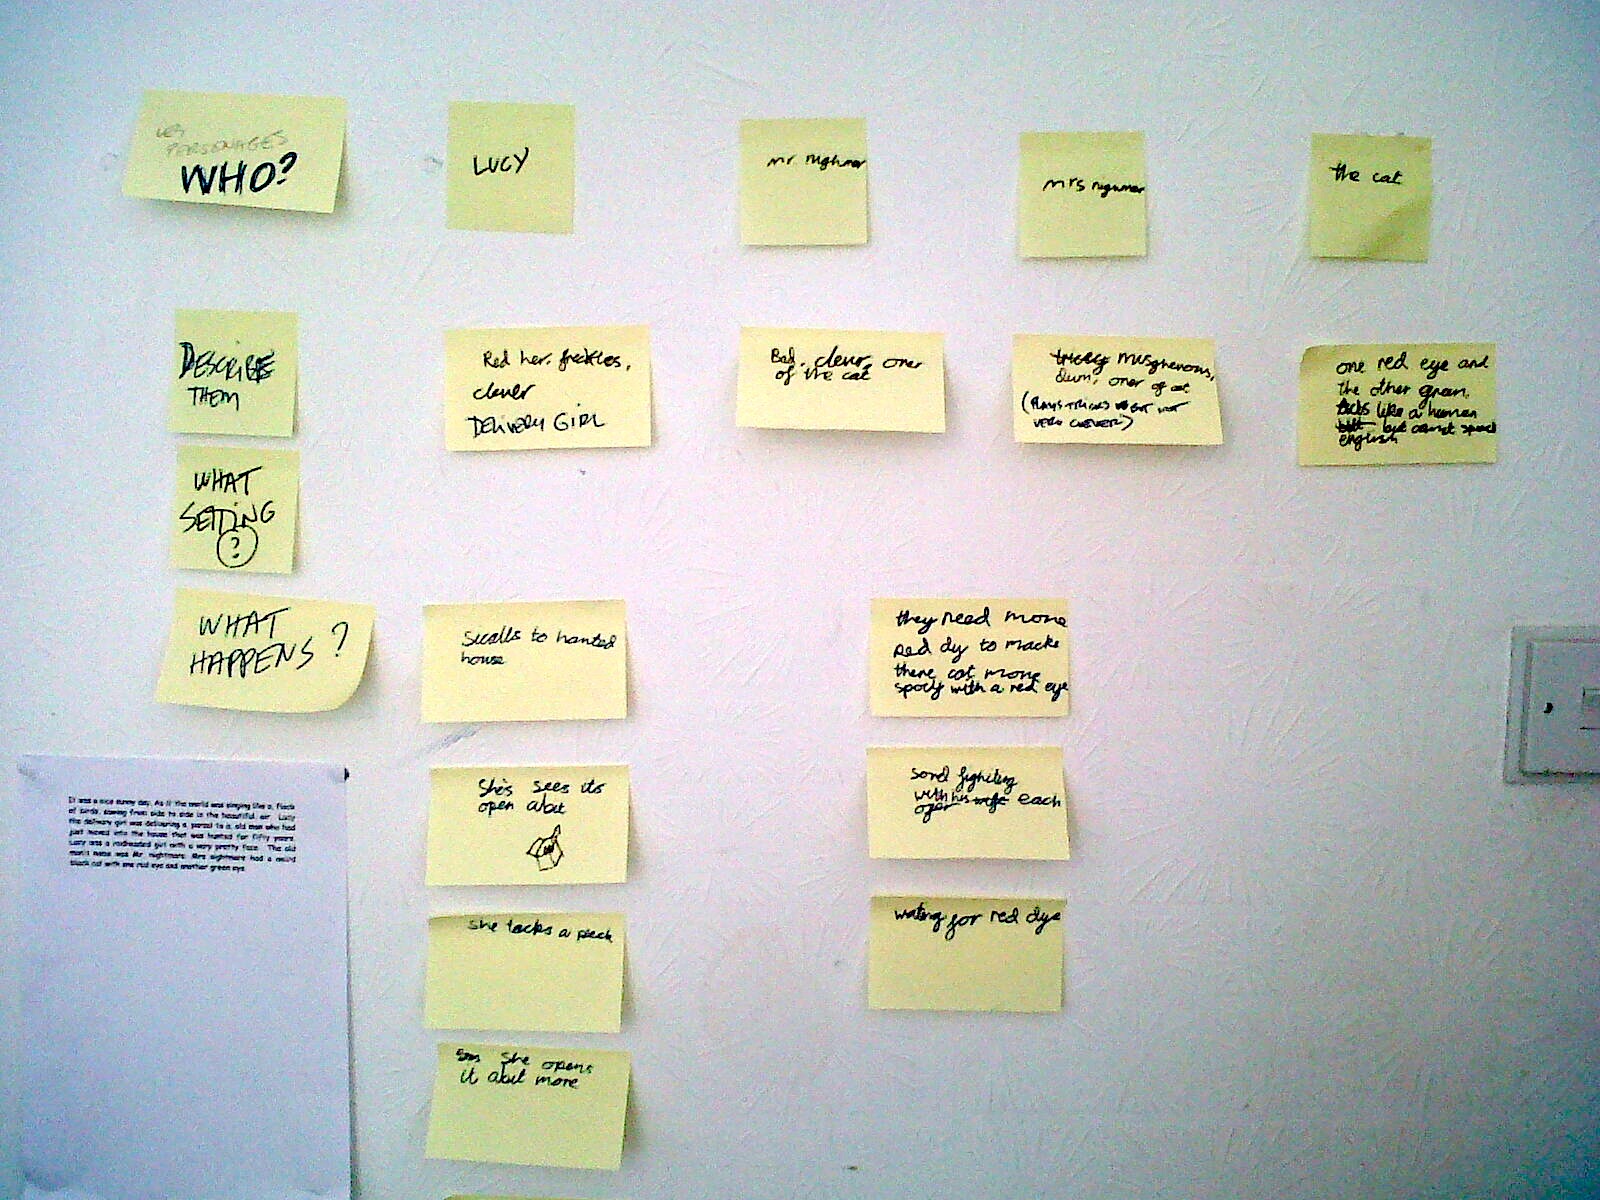 Les
PERSONAGES
WHO?
LUCY
mr. nighmar
mrs nighmar
the cat
DESCRIBE
THEM
Red her. freckles,
clever
DELIVERY GIRL
Bad. clever, oner
of the cat
musghevous,
dum, oner of cat
(PLAYS TRICKS BUT NOT
VERY CLEVER)
one red eye and
the other green.
acts like a human
but cannot speack
english
WHAT
SETTING
?
WHAT
HAPPENS?
to hanted
house
they need more
red dy to macke
there cat more
spocy with a red eye
She's sees its
open abit
sond fighiting
with his wife each
oger
she tacks a peeck
wating for red dye
She opens
it abit more
It was a nice sunny day. As if the world was singing like a flock
of birds, soaring from side to side in the beautiful air. Lucy
the delivery girl was delivering a parcel to a old man who had
just moved into the house that was hunted for fifty years.
Lucy was a redheaded girl with a very pretty face. The old
man's name was Mr nightmare. Mrs nightmare had a weird
black cat with one red eye and another green eye.